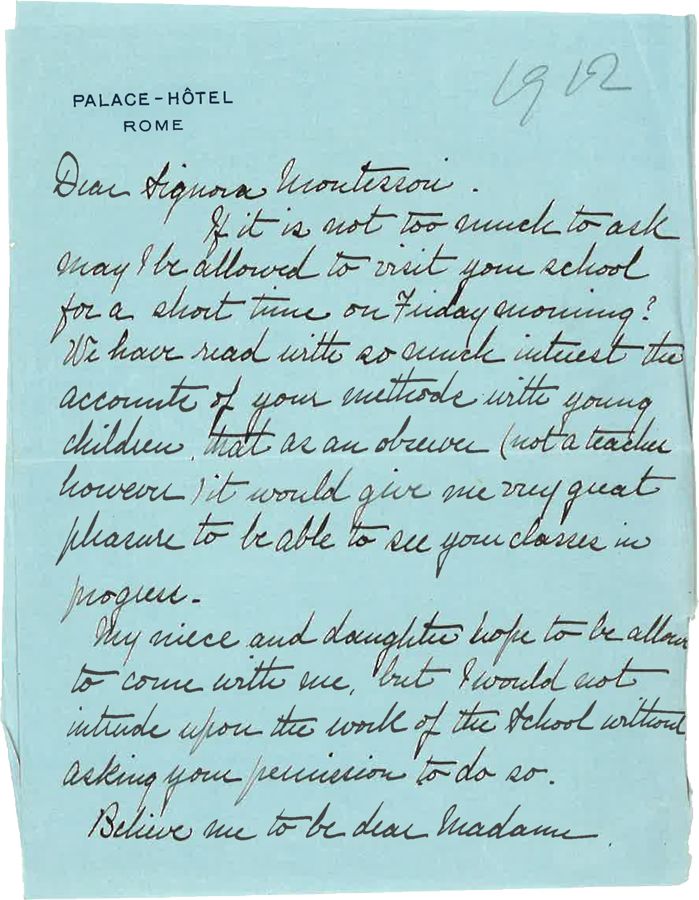 1912
PALACE-HÔTEL
ROME
Dear Signora Montessori.
If it is not too much to ask
may I be allowed to visit your school
for a short time on Friday morning?
We have read with so much interest the
accounts of your methods with young
children, that as an observer (not a teacher
however) it would give me very great
pleasure to be able to see your classes in
progress-
My niece and daughter hope to be allow
to come with me, but I would not
intrude upon the work of the School without
asking your permission to do so.
Believe me to be dear Madame